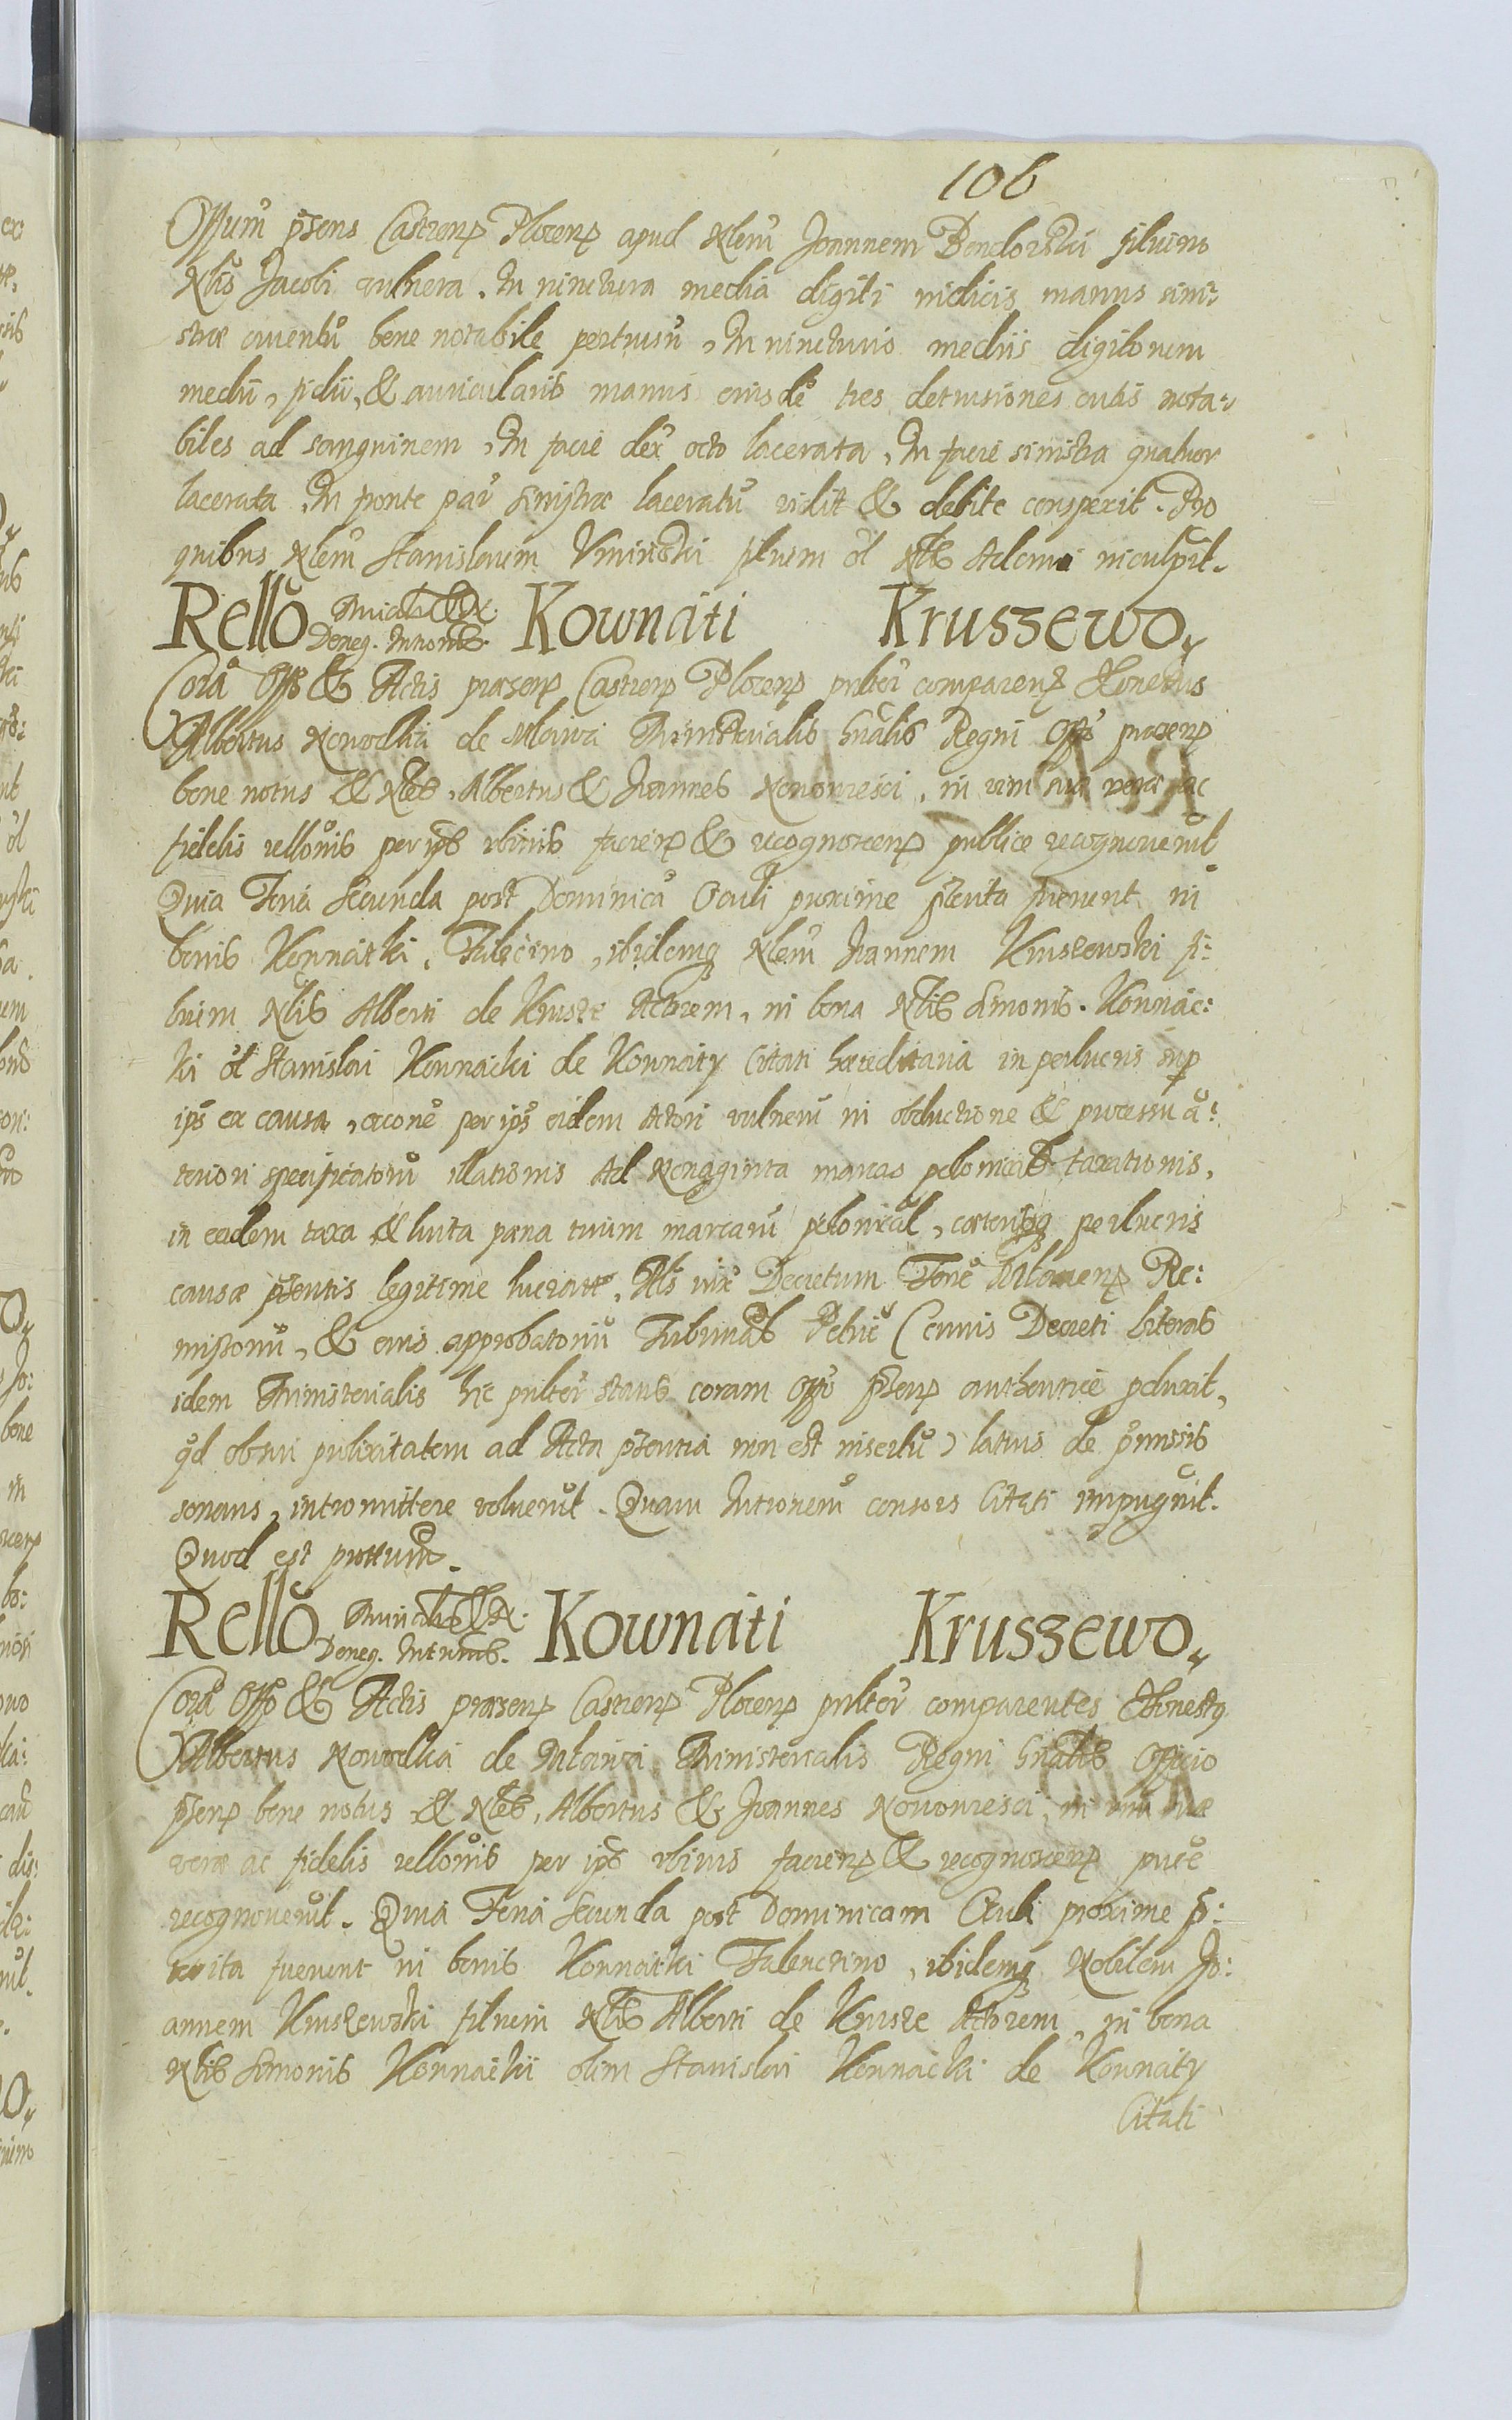 106
Offum p̃sens Castren̄ Plocen̄ apud Nlem̃ Joannem Bendorski filium
Nlis Jacobi vulnera, In iunctura media digiti indicis manus sini:
strae cruentũ bene notabile pertusũ, In iuncturis mediis digitorum
medii, & auricularis manus eiusdẽ tres detrusiones cutis nota:
biles ad sanguinem, In facie dex̃ octo lacerata, In facie sinistra quatuor
lacerata, In fronte par̃ sinistra laceratũ vidit & debite conspexit. Pro
quibus Nlem̃ Stanislaum Uminski filium õl Nlis Adami inculpit.
Rellõ Deneg. Kownati Krussewo
Corã Offo & Actis praesen̄ Castren̄ Plocen̄ publcẽ comparen̄ Honestus
Albertus Nowodka de Mlawa Ministerialis Gnãlis Regni Offo praesen̄
bene notus & Nles, Albertus & Joannes Nowowiesci, in vim suae verae ac
fidelis rellõnis per ip̃s ibinis facien̄ & recognoscen̄ publice recognoverũt
Quia Feria Secunda post Dominicã Oculi proxime p̃terita fuerunt in
bonis Kownatki, ibidemq̃ Nlem̃ Joannem Kruszewski fi:
lium Nlis Alberti de Krusze Actorem, in bona Nlis Simonis Kownac:
ki õl Stanislai Kownacki de Kownaty Citati haereditaria in perlucris sup
ip̃s ex causa, per ip̃s eidem Actori vulnerũ in obductione & processu ã:
teriori specificatorũ illationis Ad Nonaginta marcas polonicãl taxationis,
in eadem taxa & luita paena trium marcarũ polonicãl, caeterisq̃ perlucris
causae p̃sentis legitime lucratis, Als iux̃ Decretum Terrẽ Mlaven̄ Re:
missoriũ, & eius approbatoriũ Tribunãl Petric̃ (Cuius Decreti literas
idem Ministerialis hic publcẽ stans coram Offo p̃sen̄ authentice p̃duxit,
q̃d obsui prolixitatem ad Acta p̃sentia non est insertũ) latius de p̃missis
sonans, intromittere voluerũt. Quam Intronem̃ consors Citati impugnĩt.
Quod est protum̃.
Rellõ Deneg. Kownati Krussewo
Corã Offo & Actis praesen̄ Castren̄ Plocen̄ publcẽ comparentes Honest9
Albertus Nowodka de Mlawa Ministerialis Regni Gnãlis Officio
p̃sen̄ bene notus & Nles, Albertus & Joannes Nowowiesci, in vim suae
verae ac fidelis rellõnis per ip̃s ibinis facien̄ & recognoscen̄ pub̃ce
recognoverũt. Quia Feria Secunda post Dominicam Oculi proxime p̃:
terita fuerunt in bonis Kownatki, ibidemq̃ Nobilem Jo:
annem Kruszewski filium Nlis Alberti de Krusze Actorem, in bona
Nlis Simonis Kownackii olim Stanislai Kownacki de Kownaty
Citati